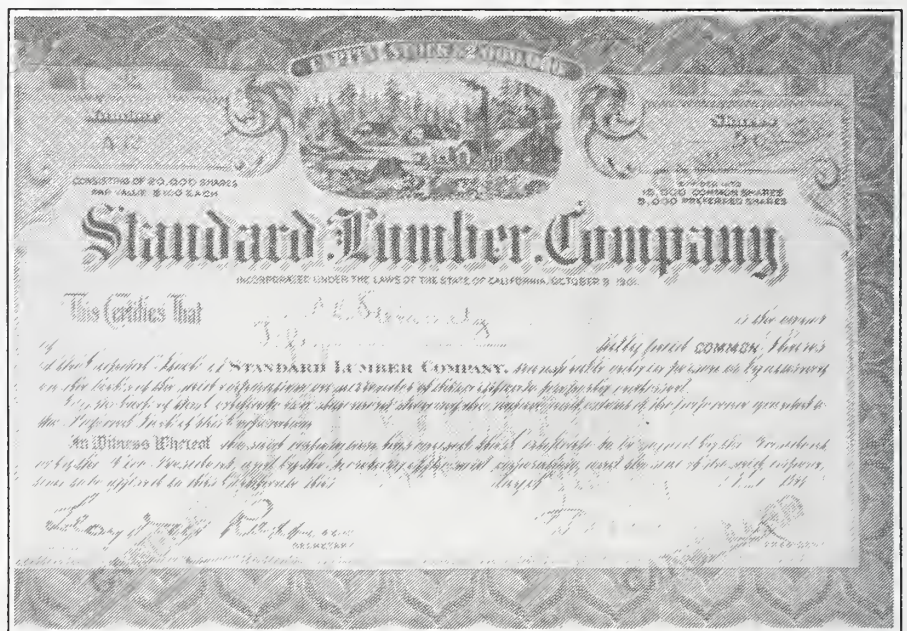 CAPITAL STOCK $2,000,000.
Number
Shares
CONSISTING OF 20,000 SHARES
PAR VALUE $100 EACH
DIVIDED INTO
15,000 COMMON SHARES
5,000 PREFERRED SHARES
Standard Lumber Company
INCORPORATED UNDER THE LAWS OF THE STATE OF CALIFORNIA, OCTOBER 9, 1901.
This Certifies That
is the owner
of fully paid COMMON Shares
of the Capital Stock of STANDARD LUMBER COMPANY, transferable only in person or by attorney
on the books of the said corporation on surrender of this certificate properly endorsed.
On the back of this certificate is a statement showing the nature and extent of the preference granted to
the Preferred Stock of this Corporation
In Witness Whereof the said corporation has caused this certificate to be signed by the President
or by the Vice President, and by the Secretary of the said corporation, and the seal of the said corpora-
tion to be affixed to this Certificate this day of
SECRETARY
PRESIDENT